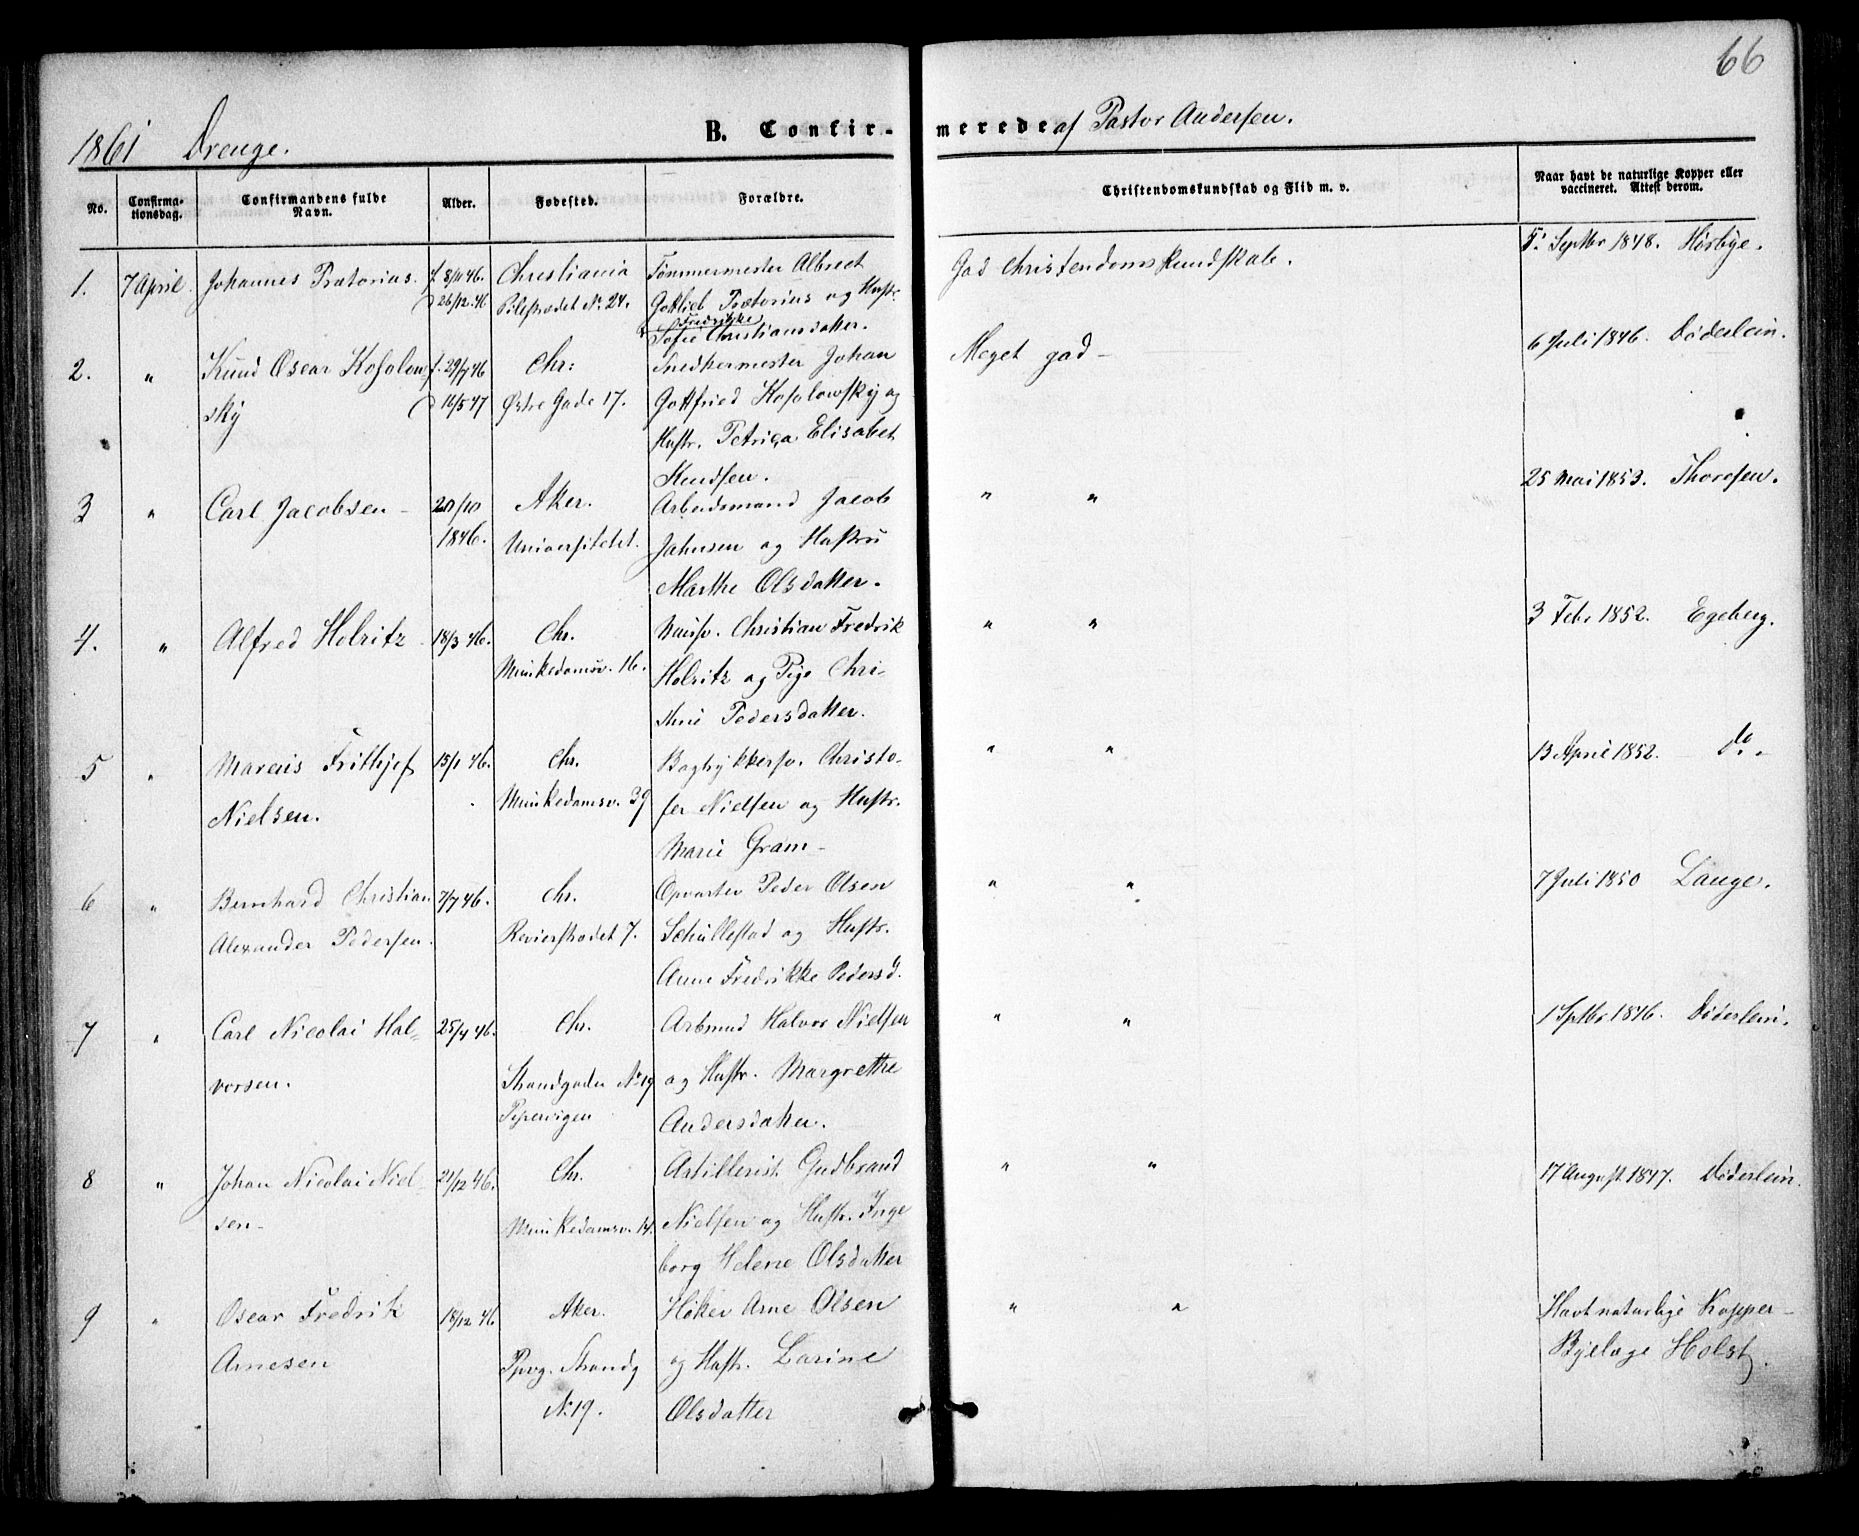 66
1861 Drenge.
B. Confir- merede af Pastor Andersen.
No.
Confirma-
tionsdag.
Confirmandens fulde
Navn.
Alder.
Fødested.
Forældre.
Christendomskundskab og Flid m. v.
Naar havt de naturlige Kopper eller
vaccineret. Attest derom.
1. 7 April. Johannes Prætorius. f. 8/11 46. Christiania Tømmermester Albrect God Christendomskundskab. 5. Septbr 1848. Hørbye.
D 26/12 46 Pilestrædet No. 24. Gottlieb Prætorius og Hustr.
Fredrikke
Sofie Christiansdatter.
2. " Knud Oscar Kosolow- f. 29/7 46 Chr: Snedkermester Johan Meget god - 6 Juli 1846. Døderlein.
sky D 16/5 47 Østre Gade 17. Gottfried Kosolowsky og
Hustr. Petrica Elisabet
Knudsen.
3 " Carl Jacobsen - 20/10 Aker. Arbeidsmand Jacob " " 25 Mai 1853. Thoresen.
1846. Universitetet. Johnsen og Hustru
Marthe Olsdatter.
4. " Alfred Holritz 18/3 46. Chr. Christian Fredrik " " 3 Febr 1852. Egeberg.
Munkedamsv. 16. Holritz og Pige Chri-
stine Pedersdatter.
5 " Marcus Frithjof 13/1 46. Chr. Bogtrykkersv. Christo- " " 13 April 1852. do. -
Nielsen. Munkedamsv. 39 fer Nielsen og Hustr.
Marie Gram -
6 " Bernhard Christian 7/7 46. Chr. Opvarter Peder Olsen " " 7 Juli 1850 Lange.
Alexander Pedersen. Revierstrædet 7. Schullestad og Hustr.
Anne Fredrikke Pedersd.
7 " Carl Nicolai Hal- 25/4 46. Chr. Arbmnd Halvor Nielsen " " 1 Septbr. 1846. Døderlein.
vorsen. Strandgaden No. 19 og Hustr. Margrethe
Pipervigen Andersdatter.
8 " Johan Nicolai Niel- 21/12 46. Chr. Artillerist Gudbrand " " 17 August 1847. Døderlein.
sen - Munkedamsv. 14. Nielsen og Hustr. Inge
borg Helene Olsdatter
9 " Oscar Fredrik 18/12 46 Aker. Høker Arne Olsen " " Havt naturlige Kopper -
Arnesen Ppvg. Strandg og Hustr. Larine Bylæge Holst.
No. 19. Olsdatter